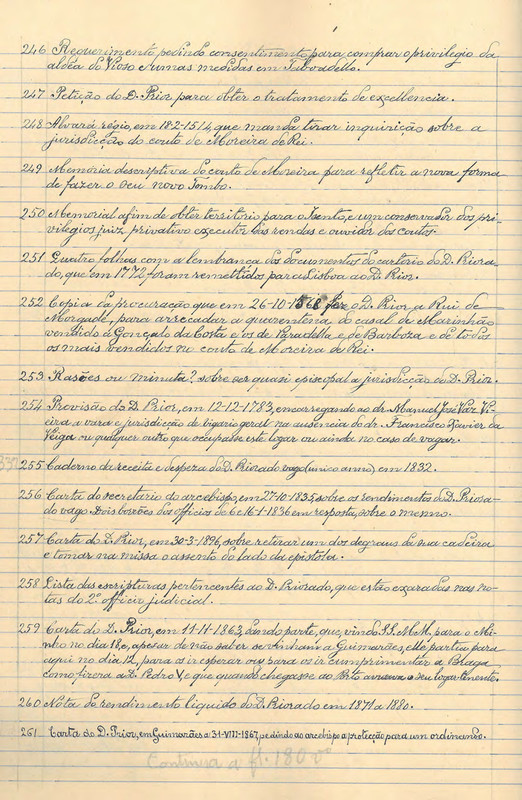 246 Requerimento pedindo consentimento para comprar o privilegio da
aldêa do Vioso e umas medidas em Taboadello.
247 Petição do D. Prior, para obter o tratamento de excellencia.
248 Alvará régio, em 18-2-1514, que manda tirar inquirição sobre a
jurisdicção do couto de Moreira de Rei.
249 Memoria descriptiva do couto de Moreira para refletir a nova forma
de fazer o seu novo Tombo.
250 Memorial afim de obter territorio para o Izento, e um conservador dos pri-
vilegios juiz privativo executor das rendas e ouvidor dos coutos.
251 Quatro folhas com a lembrança dos documentos do cartorio do D. Priora-
do, que em 1772 foram remettidos para Lisboa ao D. Prior.
252 Copia da procuração que em 26-10-1568 fez o D. Prior a Rui de
para arrecadar a quarentena do casal de Marinhão
vendido a Gonçalo da Costa e os de Paradella e de Barboza e de todos
os mais vendidos no couto de Moreira de Rei.
253 Rasões ou minuta? sobre ser quasi episcopal a jurisdicção do D. Prior.
254 Provisão do D. Prior, em 12-12-1783, encarregando ao dr. Manuel José Vaz Vi-
eira a vara e jurisdicção de vigario geral na ausencia do dr. Francisco Xavier da
Veiga ou qualquer outro que occupasse este logar ou ainda no caso de vagar.
255 Caderno da receita e despeza do D. Priorado vago (unico anno) em 1832.
256 Carta do secretario do arcebispo, em 27-10-1835, sobre os rendimentos do D. Priora-
do vago. Dois borrões dos officios de 6 e 16-1-1836 em resposta, sobre o mesmo.
257 Carta do D. Prior, em 30-3-1896, sobre retirar um dos degraus da sua cadeira
e tomar na missa o assento do lado da epistola.
258 Lista das escripturas pertencentes ao D. Priorado, que estão exaradas nas no-
tas do 2.º officio judicial.
259 Carta do D. Prior, em 11-11-1863, dando parte, que, vindo SS. MM. para o Mi-
nho no dia 18, e, apesar de não saber se vinham a Guimarães, elle partia para
aqui no dia 12, para os ir esperar ou para os ir cumprimentar a Braga
como fizera a D. Pedro V, e que quando chegasse ao Porto o seu logar-tenente.
260 Nota do rendimento liquido do D. Priorado em 1871 a 1880.
261 Carta do D. Prior, em Guimarães a 31-VIII-1867, pedindo ao arcebispo a protecção para um ordinando.
Continua a fl. 180 vº